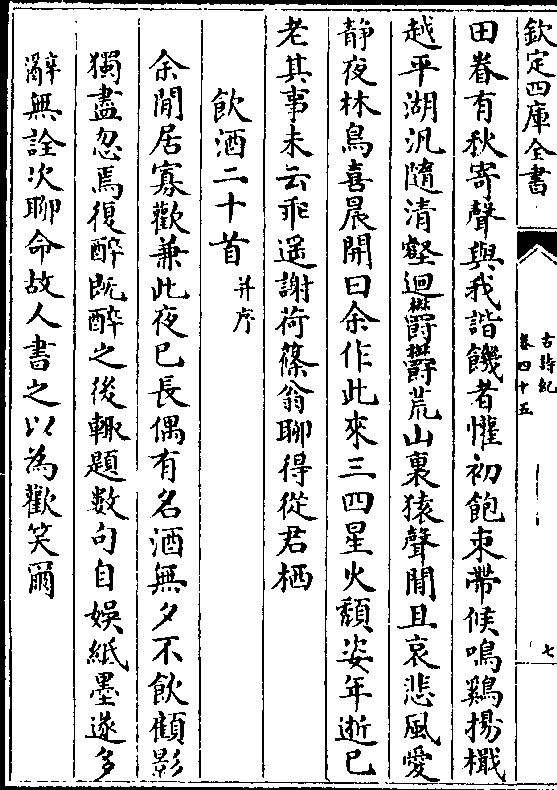 欽定四庫全書
古詩紀
卷四十五
七
田眷有秋寄聲與我諧饑者懽初飽束帶候鳴鷄揚檝
越平湖汎隨清壑迴欝欝荒山裏猿聲閒且哀悲風愛
静夜林鳥喜晨開曰余作此來三四星火頽姿年逝已
老其事未云乖遥謝荷篠翁聊得從君栖
飲酒二十首并序
余閒居寡歡兼此夜已長偶有名酒無夕不飲顧影
獨盡忽焉復醉既醉之後輒題數句自娛紙墨遂多
辭無詮次聊命故人書之以為歡笑爾